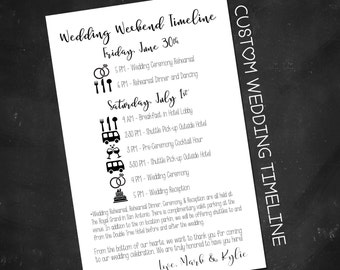 Wedding Weekend Timeline
Friday, June 30th
5 PM - Wedding Ceremony Rehearsal
6 PM - Rehearsal Dinner and Dancing
Saturday, July 1st
9 AM - Breakfast in Hotel Lobby
2:30 PM - Shuttle Pick-up Outside Hotel
3 PM - Pre-Ceremony Cocktail Hour
3:30 PM - Shuttle Pick-up Outside Hotel
4 PM - Wedding Ceremony
5 PM - Wedding Reception
*Wedding Rehearsal, Rehearsal Dinner, Ceremony & Reception are all held at
The Royal Grand in San Antonio. There is complimentary valet parking at the
venue. In addition to the on location parking, we will be offering shuttles to and
from the Double Tree Hotel before and after the wedding.
From the bottom of our hearts, we want to thank you for coming
to our wedding celebration. We are truly honored to have you here!
Love, Mark & Kylie
CUSTOM WEDDING TIMELINE